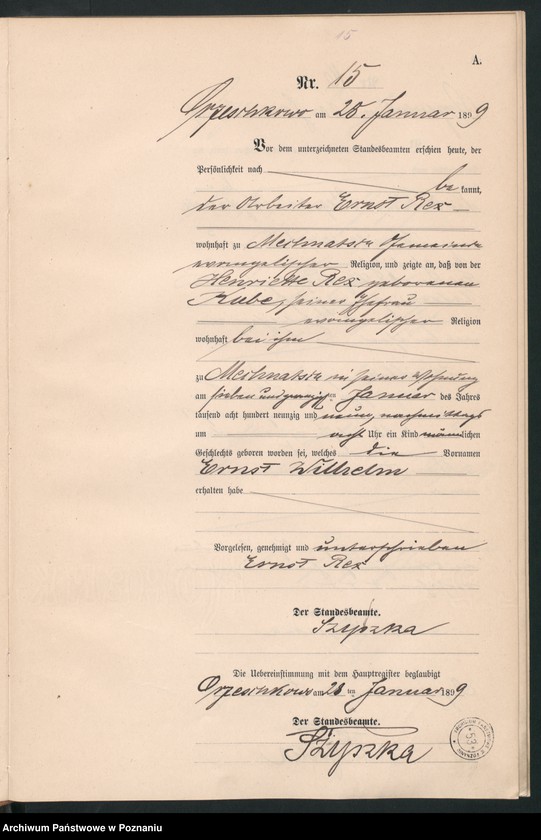 15
A.
Nr. 15
Orzeschkowo am 28. Januar 1899
Vor dem unterzeichneten Standesbeamten erschien heute, der
Persönlichkeit nach
be kannt,
der Arbeiter Ernst Rex
wohnhaft zu Gemeinde
evangelischer Religion, und zeigte an, daß von der
Henriette Rex geborenen
Kube, seiner Ehefrau
evangelischer Religion
wohnhaft bei ihm
zu in seiner Wohnung
am sieben und zwanzigsten Januar des Jahres
tausend acht hundert neunzig und neun, nachmittags
um acht Uhr ein Kind männlichen
Geschlechts geboren worden sei, welches die Vornamen
Ernst Wilhelm
erhalten habe
Vorgelesen, genehmigt und unterschrieben
Ernst Rex
Der Standesbeamte.
Szyszka
Die Uebereinstimmung mit dem Hauptregister beglaubigt
Orzeschkowo am 28 ten Januar 1899
Der Standesbeamte.
Szyszka
53
Archiwum Państwowe w Poznaniu